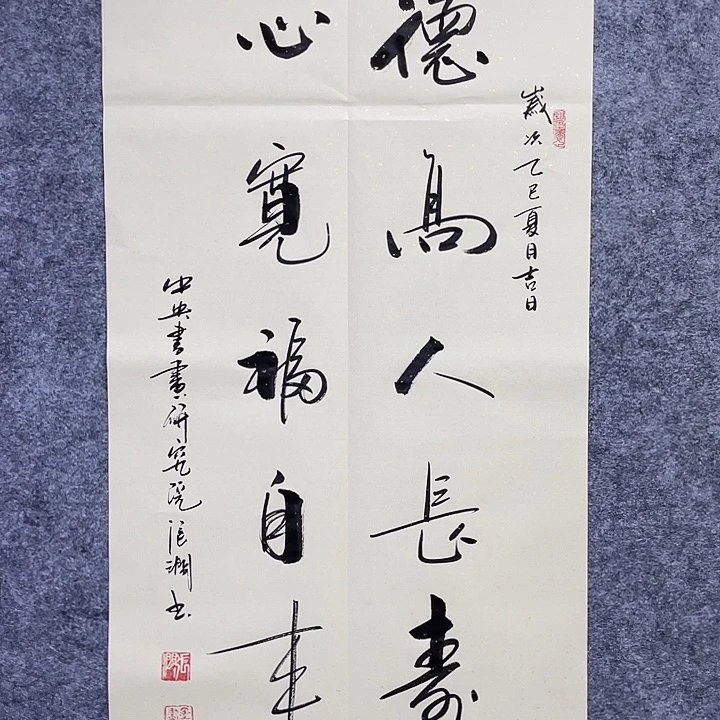 歲次乙巳夏日吉日
德高人長壽
心寬福自来
中央書畫研究院張瀾书